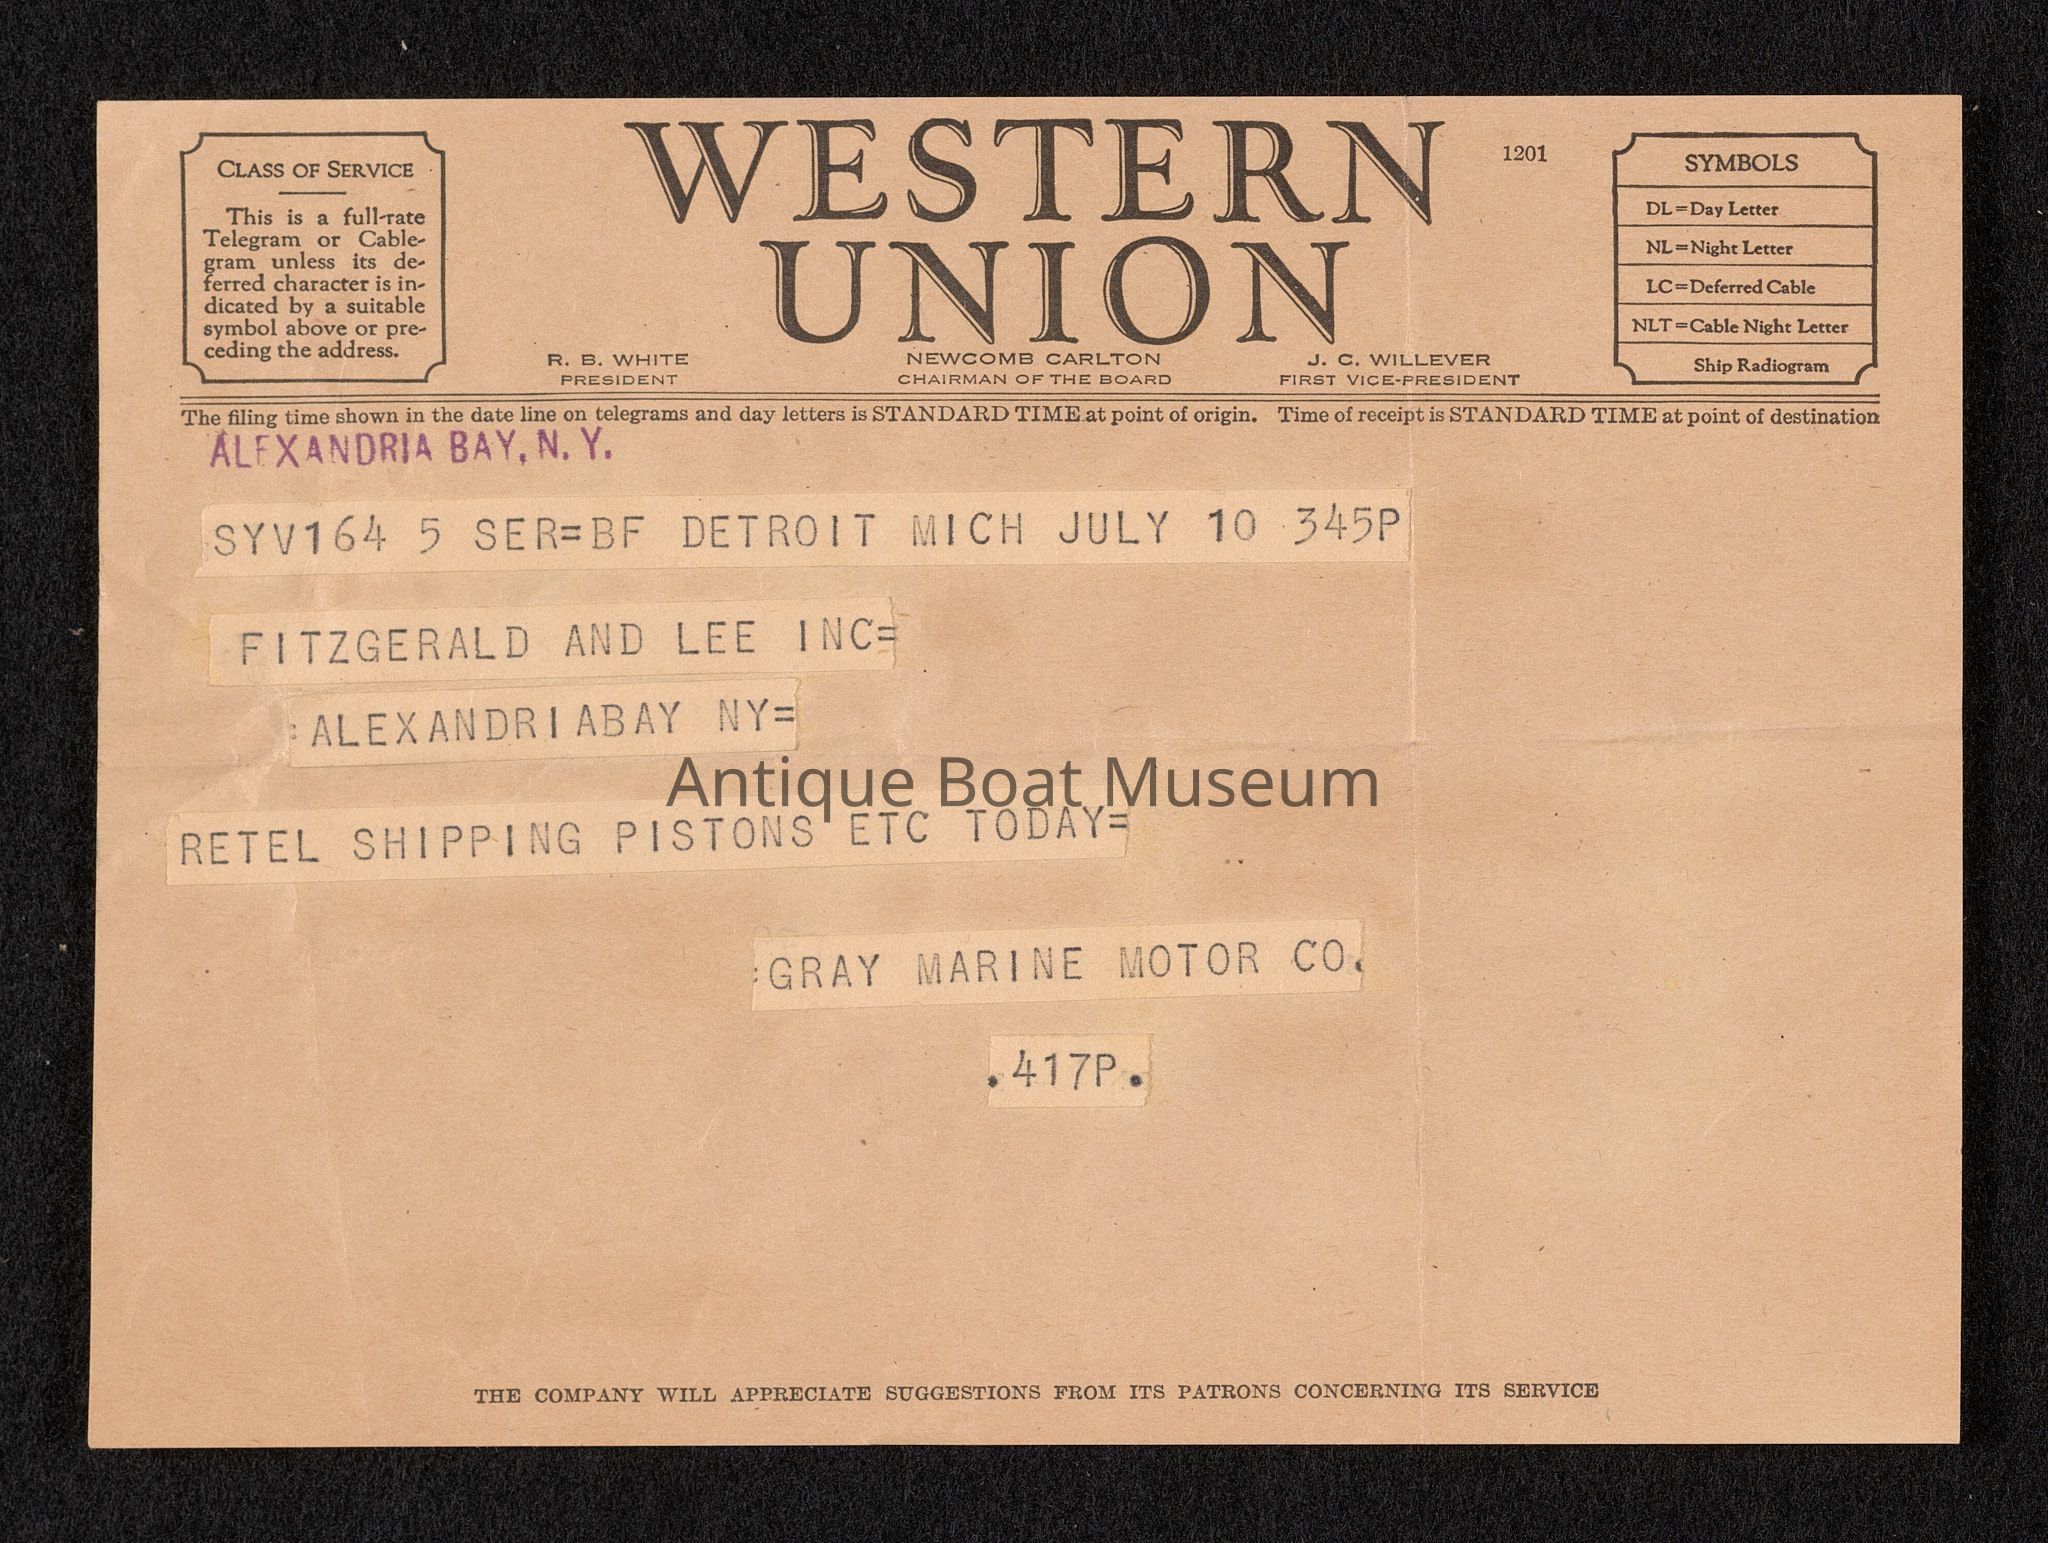 WESTERN
UNION
1201
CLASS OF SERVICE
This is a full-rate
Telegram or Cable-
gram unless its de-
ferred character is in-
dicated by a suitable
symbol above or pre-
ceding the address.
SYMBOLS
DL=Day Letter
NL=Night Letter
LC=Deferred Cable
NLT=Cable Night Letter
Ship Radiogram
R. B. WHITE
PRESIDENT
NEWCOMB CARLTON
CHAIRMAN OF THE BOARD
J. C. WILLEVER
FIRST VICE-PRESIDENT
The filing time shown in the date line on telegrams and day letters is STANDARD TIME at point of origin. Time of receipt is STANDARD TIME at point of destination
ALEXANDRIA BAY, N. Y.
SYV164 5 SER=BF DETROIT MICH JULY 10 345P
FITZGERALD AND LEE INC=
:ALEXANDRIABAY NY=
Antique Boat Museum
RETEL SHIPPING PISTONS ETC TODAY=
:GRAY MARINE MOTOR CO.
.417P.
THE COMPANY WILL APPRECIATE SUGGESTIONS FROM ITS PATRONS CONCERNING ITS SERVICE